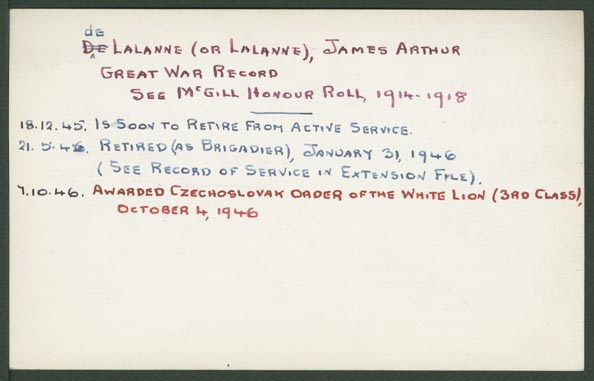 de
De Lalanne (or Lalanne), James Arthur
Great War Record
See McGill Honour Roll, 1914-1918
18.12.45. Is Soon to Retire From Active Service.
21.5.46. Retired (as Brigadier), January 31, 1946
(See Record of Service in Extension File).
7.10.46. Awarded Czechoslovak Order of the White Lion (3rd Class),
October 4, 1946